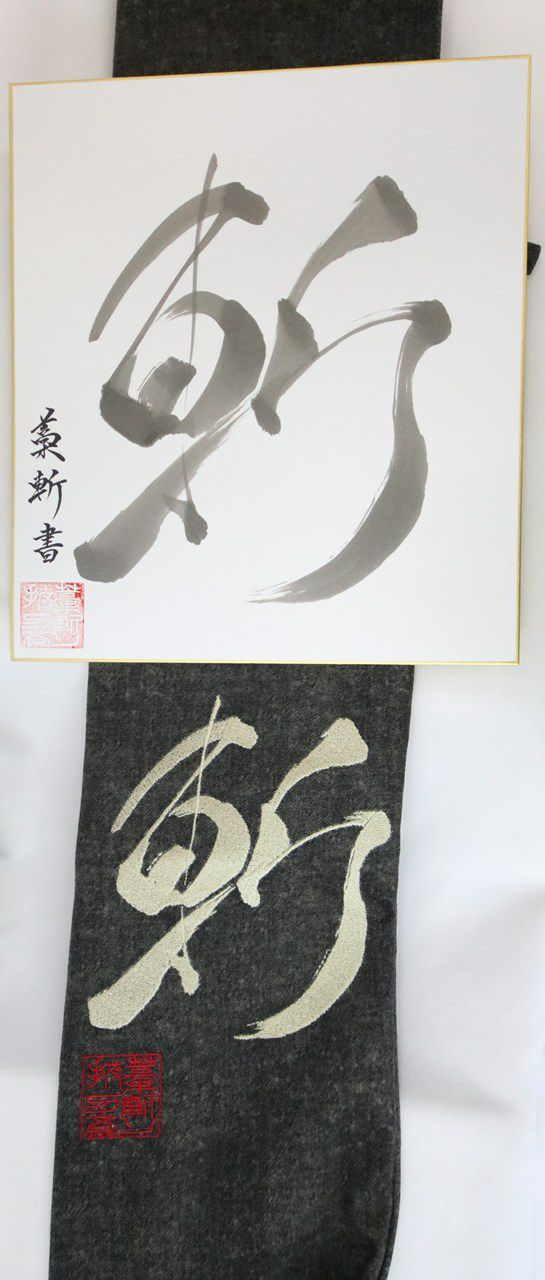 斬
藁斬書
斬